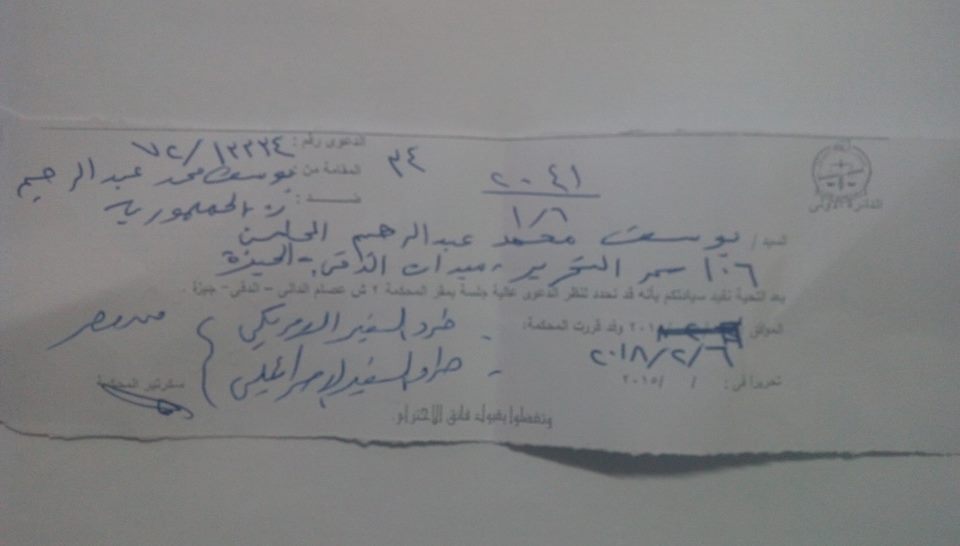 الدعوى رقم : ١٣٣٣٤ / ٧٢
٣٤
المقامة من : يوسف محمد عبد الرحيم
ضد : رئـ الجمهورية
الدائرة الأولى
٢٠٤١
١/٦
السيد / يوسف محمد عبد الرحيم المحامين
١٠٦ ممر التحرير - ميدان الدقى - الجيزة
بعد التحية نفيد سيادتكم بأنه قد تحدد لنظر الدعوى عالية جلسة بمقر المحكمة ٢ ش عصام الدالى - الدقى - جيزة .
الموافق وقد قررت المحكمة:
٢٠١٨/٢/٦
- طرد السفير الامريكى
- طرد السفير الإسرائيلى
من مصر
تحريرا فى : / / ٢٠١٥
سكرتير المحكمة
وتفضلوا بقبول فائق الاحترام